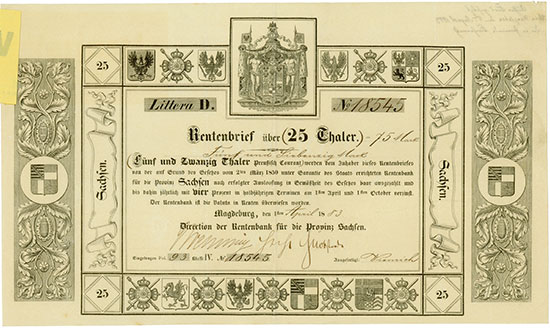 25
25
Littera D.
№ 18545
Rentenbrief über (25 Thaler.) = 75 Mark
Fünf und Siebenzig Mark
Fünf und Zwanzig Thaler Preußisch Courant) werden dem Inhaber dieses Rentenbriefes
von der auf Grund des Gesetzes vom 2ten März 1850 unter Garantie des Staats errichteten Rentenbank
für die Provinz Sachsen nach erfolgter Ausloosung in Gemäßheit des Gesetzes baar ausgezahlt und
bis dahin jährlich mit vier Procent in halbjährigen Terminen am 1sten April und 1sten October verzinst.
Der Rentenbank ist die Valuta in Renten überwiesen worden.
Magdeburg, den 1sten April 1883
Direction der Rentenbank für die Provinz Sachsen.
Eingetragen Fol. 93 Blatt IV. № 18545
Ausgefertigt
Sachsen.
Sachsen.
25
25